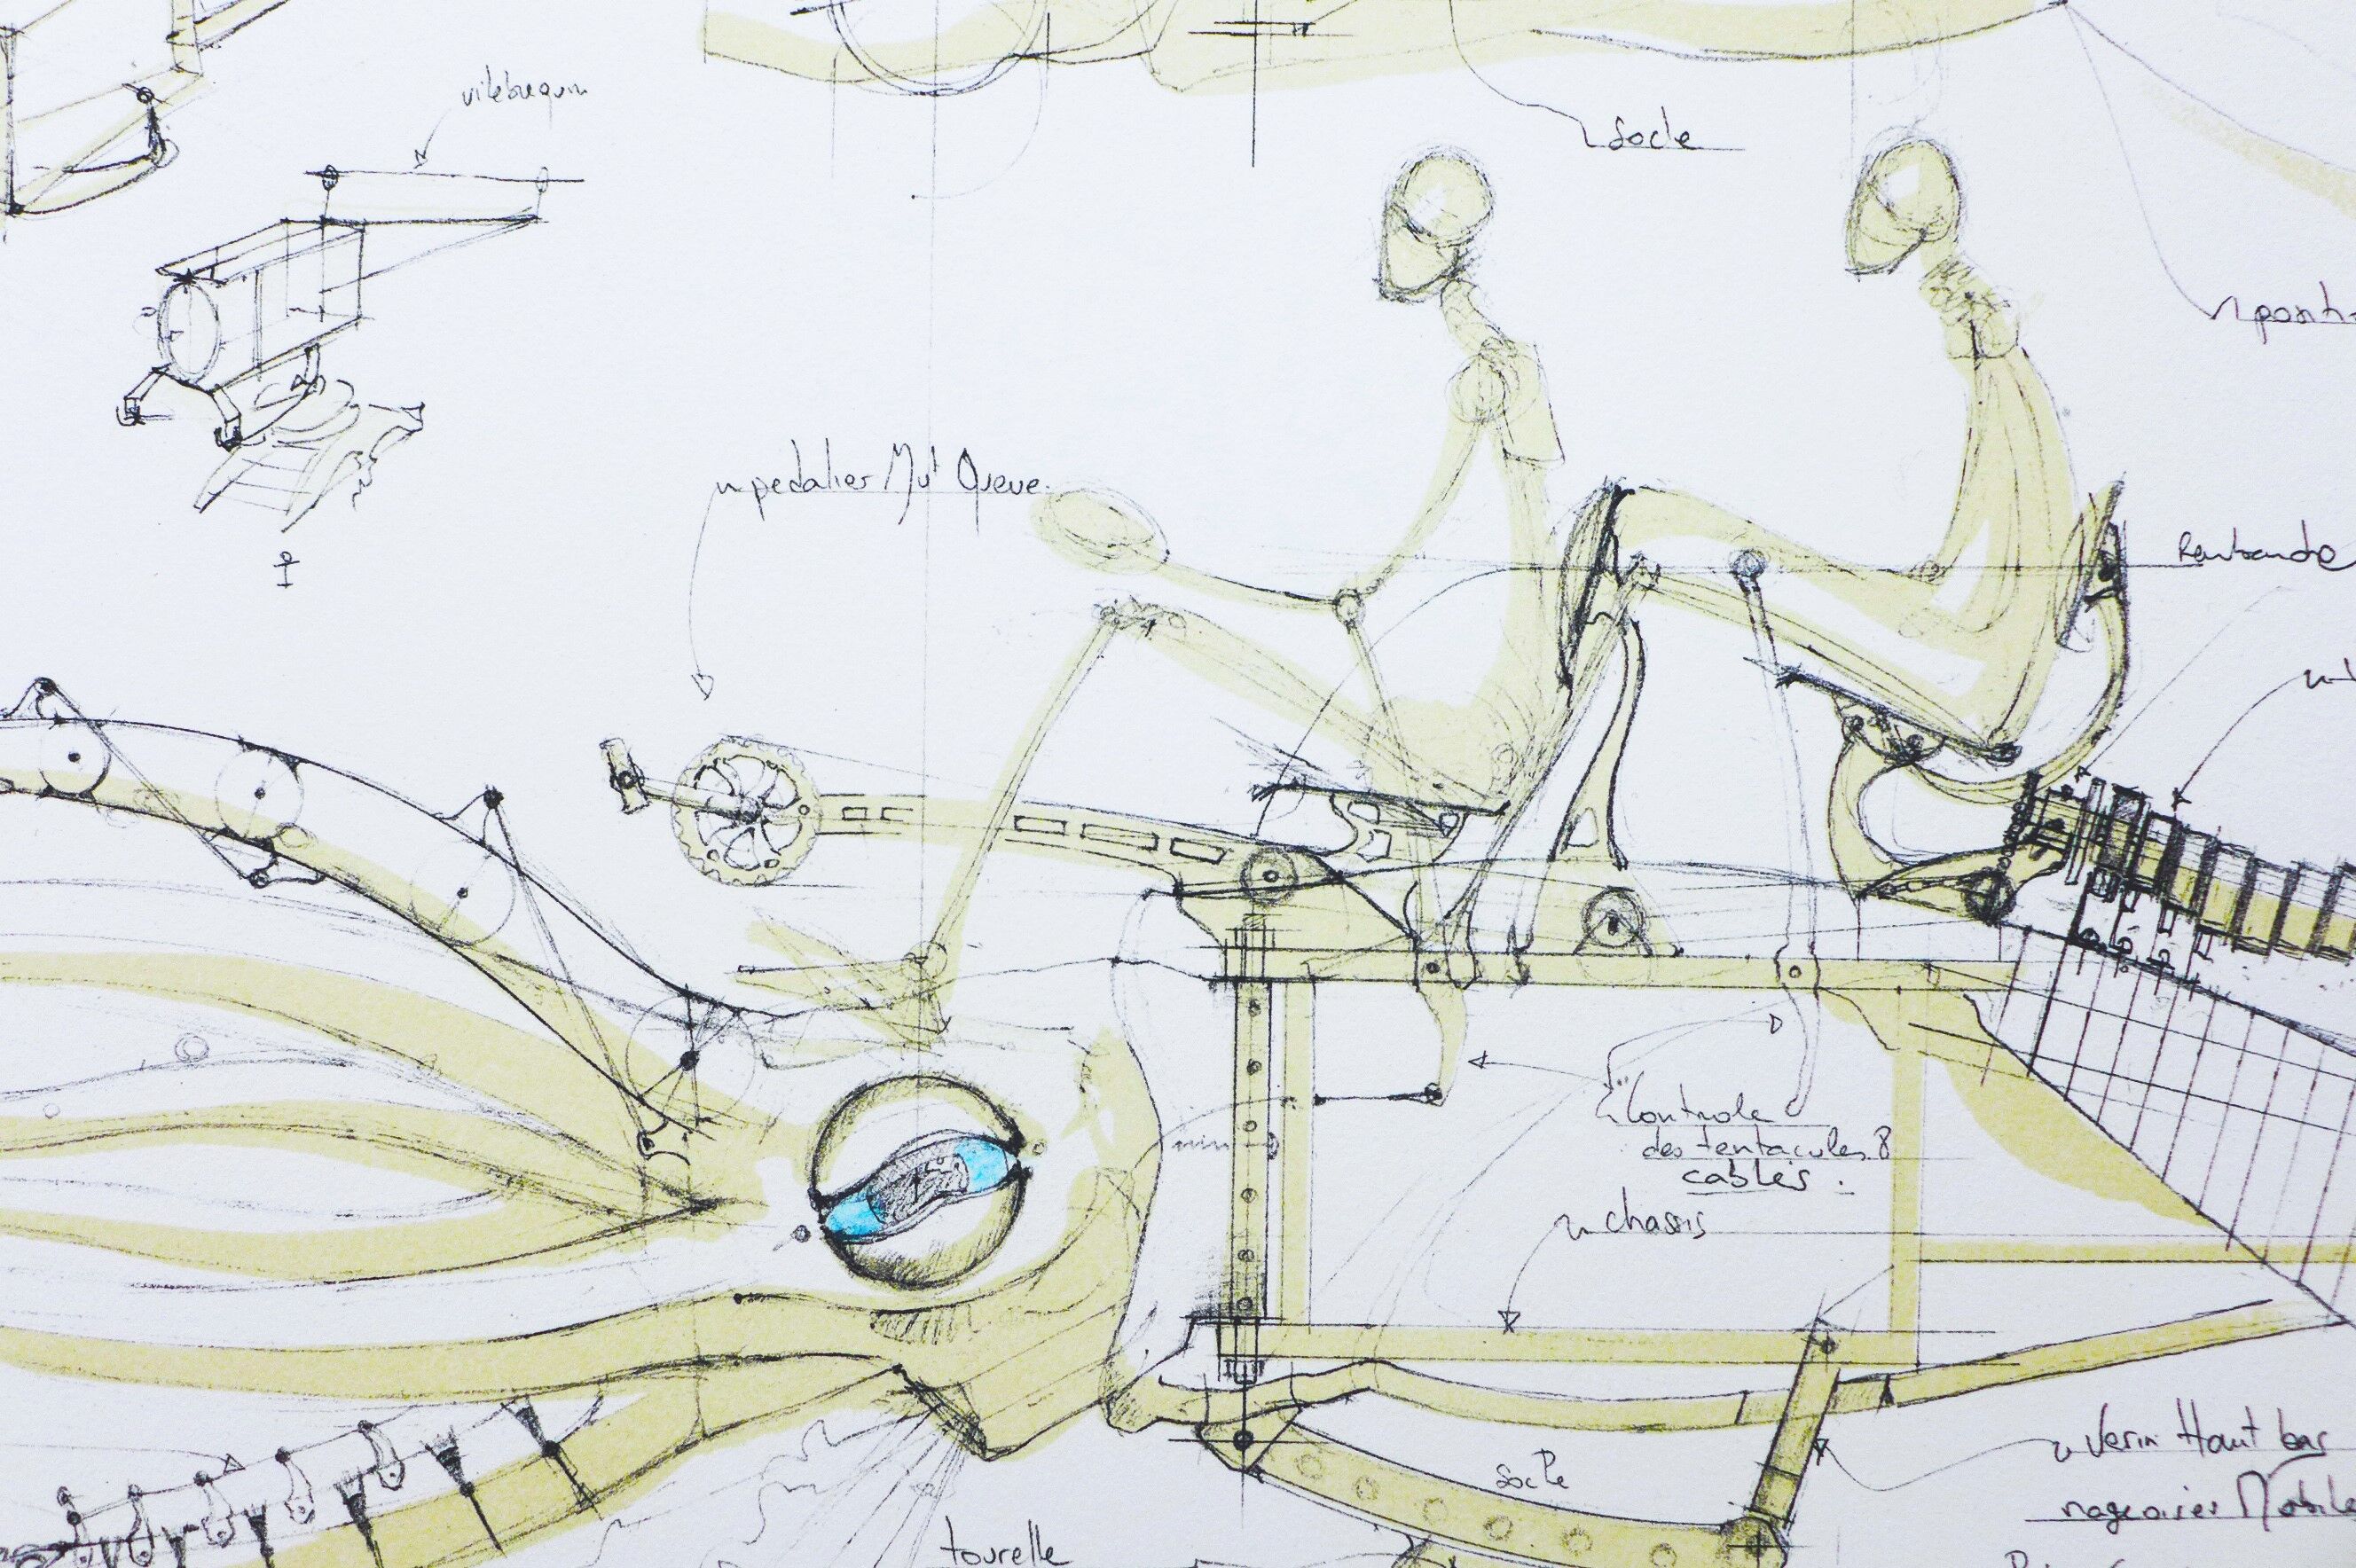 vilebrequin
Socle
pedalier Mvt Queue.
Controle
des tentacules 8
cables.
chassis
Verin Haut bas
nageoires Mobile
socle
tourelle